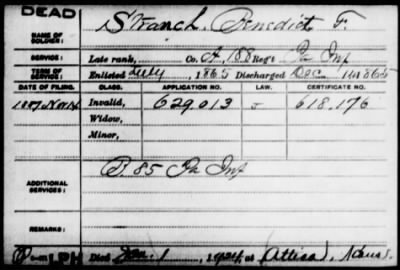 DEAD
NAME OF SOLDIER: Strauch, Benedict F.
SERVICE: Late rank, Co. A, 188 Reg't Pa Inf
TERM OF SERVICE: Enlisted July, 1865 Discharged Dec, 1865
DATE OF FILING. CLASS. APPLICATION NO. LAW. CERTIFICATE NO.
1887 Nov 14 Invalid, 629,013 618,176
Widow,
Minor,
ADDITIONAL SERVICES: B. 85 Pa Inf
REMARKS:
Died Jan. 1, 1924, at Attica, Kans.